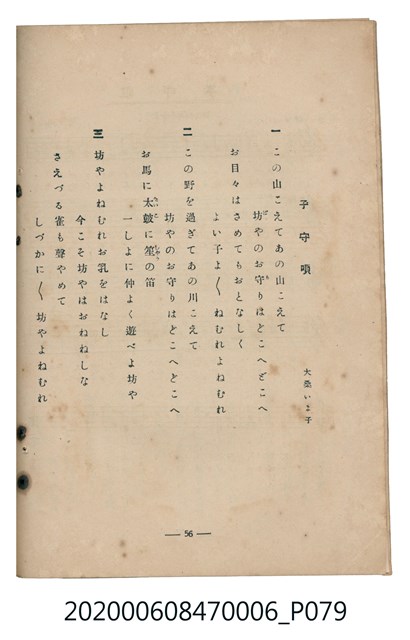 子守唄
大桑いま子
一 この山こえてあの山こえて
坊やのお守りはどこへどこへ
お目々はさめてもおとなしく
よい子よ〱ねむれよねむれ
二 この野を過ぎてあの川こえて
坊やのお守りはどこへどこへ
お馬に太皷に笙の笛
一しよに仲よく遊べよ坊や
三 坊やよねむれお乳をはなし
今こそ坊やはおねねしな
さえづる雀も聲やめて
しづかに〱坊やよねむれ
— 56 —
202000608470006_P079